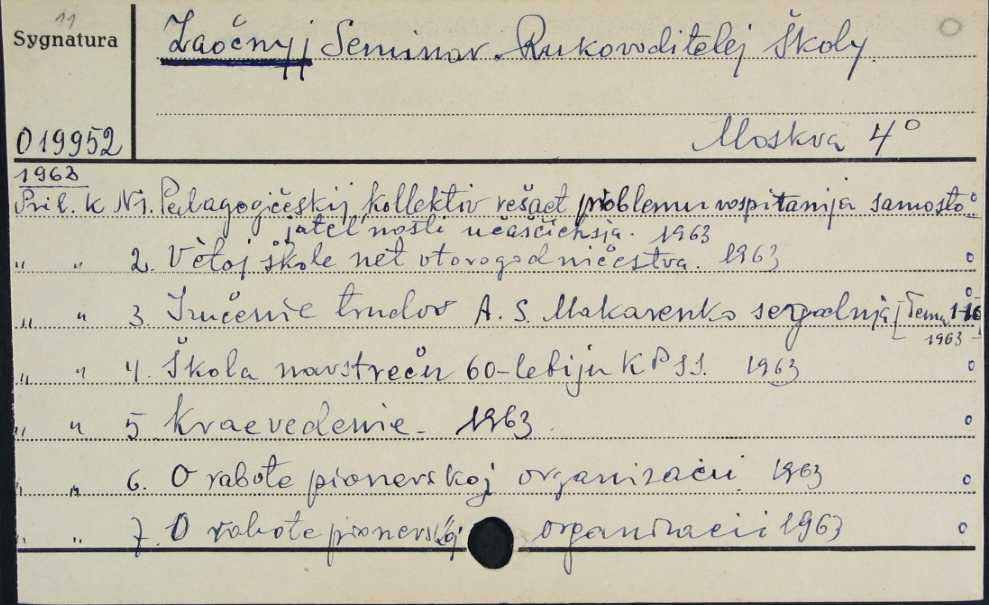 11
Sygnatura
Zaočnyj Seminar Rukovoditelej Školy
019952
Moskva 4°
1963
Pril. k N 1. Pedagogičeskij kollektiv rešaet problemu vospitanija samosto-
jatel'nosti učaščichsja. 1963
" " 2. V ėtoj škole net vtorogodničestva. 1963
" " 3. Izučenie trudov A. S. Makarenko segodnja [Tema 1-16
1963
" " 4. Škola navstreču 60-letiju KPSS. 1963
" " 5 Kraevedenie. 1963
" " 6. O rabote pionerskoj organizacii 1963
" " 7. O rabote pionerskoj organizacii 1963